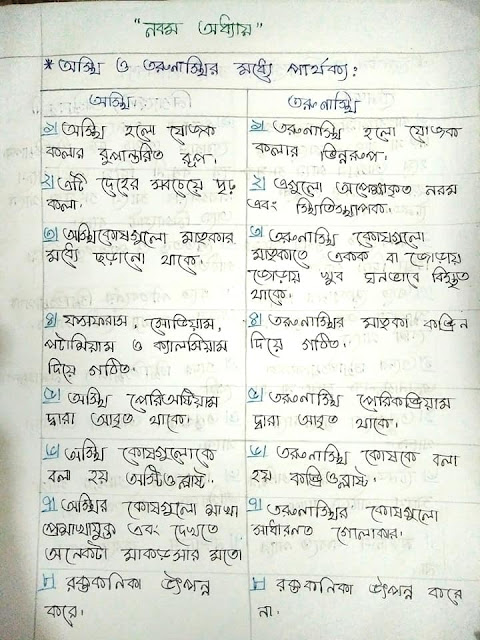 "নবম অধ্যায়"
* অস্থি ও তরুনাস্থির মধ্যে পার্থক্য:
অস্থি
তরুনাস্থি
১) অস্থি হলো যোজক
কলার রুপান্তরিত রূপ।
১) তরুনাস্থি হলো যোজক
কলার ভিন্নরুপ।
২) এটি দেহের সবচেয়ে দৃঢ়
কলা।
২) এগুলো অপেক্ষাকৃত নরম
এবং স্থিতিস্থাপক।
৩) অস্থিকোষগুলো মাতৃকার
মধ্যে ছড়ানো থাকে।
৩) তরুনাস্থি কোষগুলো
মাতৃকাতে একক বা জোড়ায়
জোড়ায় খুব ঘনভাবে বিস্তৃত
থাকে।
৪) ফসফরাস, সোডিয়াম,
পটাসিয়াম ও ক্যালসিয়াম
দিয়ে গঠিত।
৪) তরুনাস্থির মাতৃকা কন্ড্রিন
দিয়ে গঠিত।
৫) অস্থি পেরিঅস্টিয়াম
দ্বারা আবৃত থাকে।
৫) তরুনাস্থি পেরিকন্ড্রিয়াম
দ্বারা আবৃত থাকে।
৬) অস্থি কোষগুলোকে
বলা হয় অস্টিওব্লাস্ট।
৬) তরুনাস্থি কোষকে বলা
হয় কন্ড্রিওব্লাস্ট।
৭) অস্থির কোষগুলো শাখা
প্রশাখাযুক্ত এবং দেখতে
অনেকটা মাকড়সার মতো
৭) তরুনাস্থির কোষগুলো
সাধারনত গোলাকার।
৮) রক্তকনিকা উৎপন্ন
করে।
৮) রক্তকনিকা উৎপন্ন করে
না।